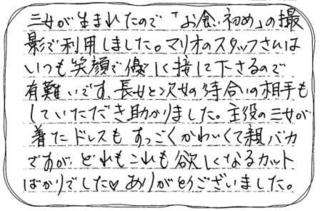 三女が生まれたので「お食い初め」の撮
影で利用しました。マリオのスタッフさんは
いつも笑顔で優しく接して下さるので
有難いです。長女と次女の待合いの相手も
していただき助かりました。主役の三女が
着たドレスもすっごくかわいくて親バカ
ですが、どれもこれも欲しくなるカット
ばかりでした♡ありがとうございました。